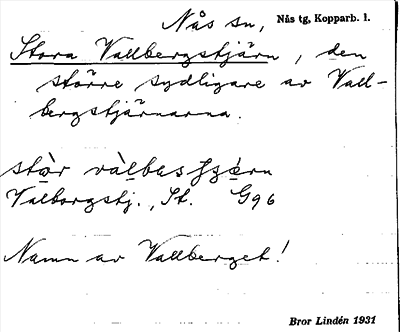 Nås sn, Nås tg, Kopparb. l.
Stora Vallbergstjärn, den
större sydligare av Vall-
bergstjärnarna.
Valborgstj., St. G96
Namn av Vallberget!
Bror Lindén 1931